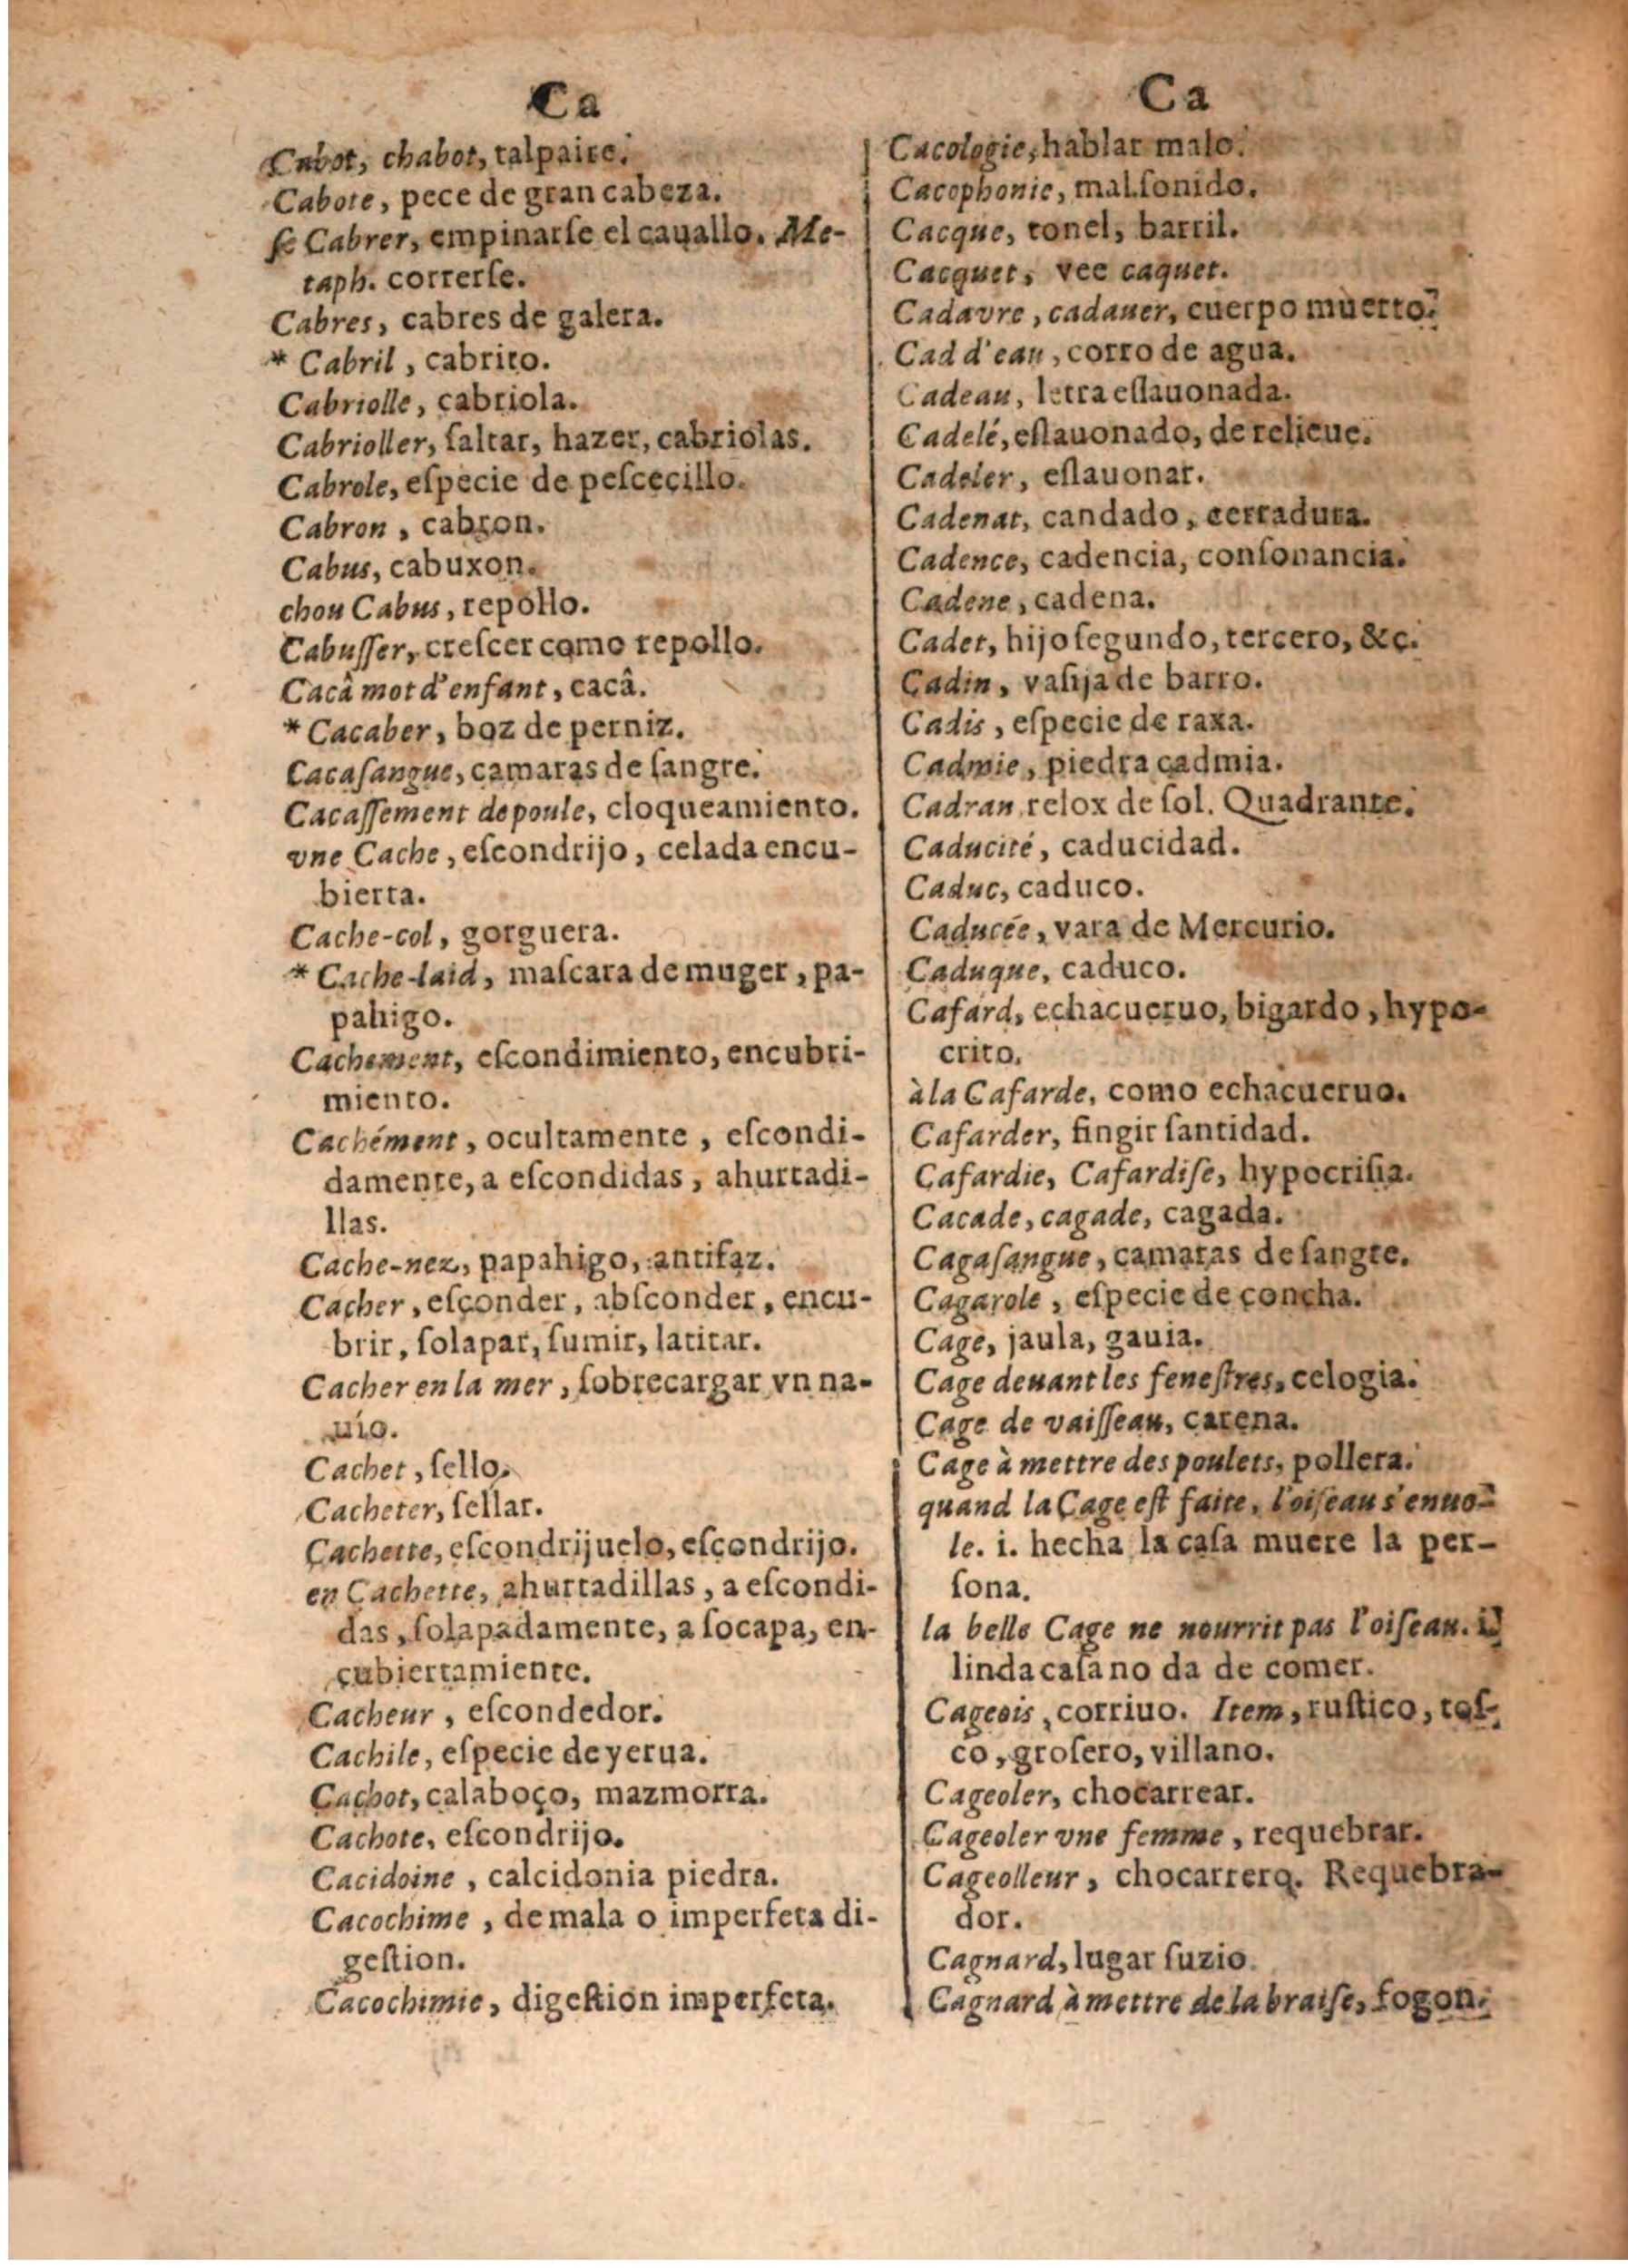 Ca
Cabot, chabot, talpaire.
Cabote, pece de gran cabeza.
ſe Cabrer, empinarſe el cauallo. Me-
taph. correrſe.
Cabres, cabres de galera.
* Cabril, cabrito.
Cabriolle, cabriola.
Cabrioller, ſaltar, hazer, cabriolas.
Cabrole, eſpecie de peſcecillo.
Cabron, cabron.
Cabus, cabuxon.
chou Cabus, repollo.
Cabuſſer, creſcer como repollo.
Cacâ mot d'enfant, cacâ.
* Cacaber, boz de perniz.
Cacaſangue, camaras de ſangre.
Cacaſſement de poule, cloqueamiento.
vne Cache, eſcondrijo, celada encu-
bierta.
Cache-col, gorguera.
* Cache-laid, maſcara de muger, pa-
pahigo.
Cachement, eſcondimiento, encubri-
miento.
Cachément, ocultamente, eſcondi-
damente, a eſcondidas, ahurtadi-
llas.
Cache-nez, papahigo, antifaz.
Cacher, eſconder, abſconder, encu-
brir, ſolapar, ſumir, latitar.
Cacher en la mer, ſobrecargar vn na-
uio.
Cachet, ſello.
Cacheter, ſellar.
Cachette, eſcondrijuelo, eſcondrijo.
en Cachette, ahurtadillas, a eſcondi-
das, ſolapadamente, a ſocapa, en-
cubiertamiente.
Cacheur, eſcondedor.
Cachile, eſpecie de yerua.
Cachot, calaboço, mazmorra.
Cachote, eſcondrijo.
Cacidoine, calcidonia piedra.
Cacochime, de mala o imperfeta di-
geſtion.
Cacochimie, digeſtion imperfeta.
Ca
Cacologie, hablar malo.
Cacophonie, mal ſonido.
Cacque, tonel, barril.
Cacquet, vee caquet.
Cadavre, cadauer, cuerpo muerto.
Cad d'eau, corro de agua.
Cadeau, letra eſlauonada.
Cadelé, eſlauonado, de relieue.
Cadeler, eſlauonar.
Cadenat, candado, cerradura.
Cadence, cadencia, conſonancia.
Cadene, cadena.
Cadet, hijo ſegundo, tercero, &c.
Cadin, vaſija de barro.
Cadis, eſpecie de raxa.
Cadmie, piedra cadmia.
Cadran relox de ſol. Quadrante.
Caducité, caducidad.
Caduc, caduco.
Caducée, vara de Mercurio.
Caduque, caduco.
Cafard, echacueruo, bigardo, hypo-
crito.
à la Cafarde, como echacueruo.
Cafarder, fingir ſantidad.
Cafardie, Cafardiſe, hypocriſia.
Cacade, cagade, cagada.
Cagaſangue, camaras de ſangre.
Cagarole, eſpecie de concha.
Cage, jaula, gauia.
Cage deuant les feneſtres, celogia.
Cage de vaiſſeau, carena.
Cage à mettre des poulets, pollera.
quand la Cage eſt faite, l'oiſeau s'enuo-
le. i. hecha la caſa muere la per-
ſona.
la belle Cage ne nourrit pas l'oiſeau. i.
linda caſa no da de comer.
Cageois, corriuo. Item, ruſtico, toſ-
co, groſero, villano.
Cageoler, chocarrear.
Cageoler vne femme, requebrar.
Cageolleur, chocarrero. Requebra-
dor.
Cagnard, lugar ſuzio.
Cagnard à mettre de la braiſe, fogon.